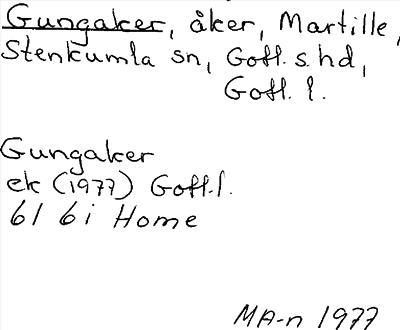 Gungaker, åker, Martille,
Stenkumla sn, Gotl. s. hd,
Gotl. l.
Gungaker
ek (1977) Gotl. l.
6I 6i Home
MA-n 1977